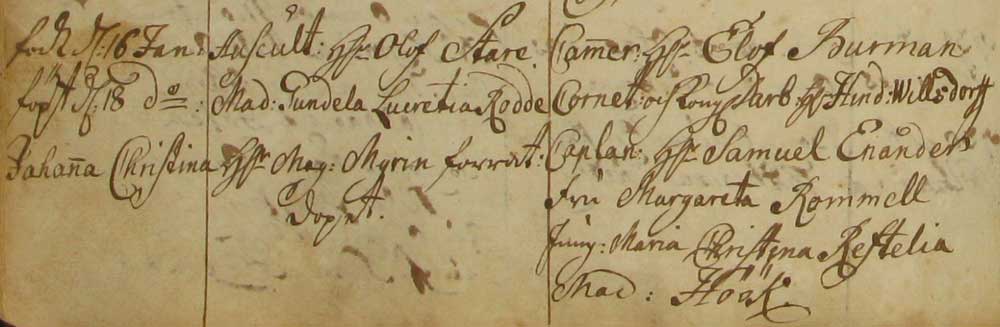 född d: 16 Jan:
föpt d: 18 do:
Johanna Christina
Auscult: Hr Olof Stare.
Mad: Gundela Lucretia Rodde
Hr Mag: Myrin förrät:
Dopet.
Camer: Hr Elof Burman
Cornet: och Hr Hind: Willsdorff
Caplan: Hr Samuel Enånder
Fru Margareta Rommell
Jung: Maria Christina Restelia
Mad: Höök.